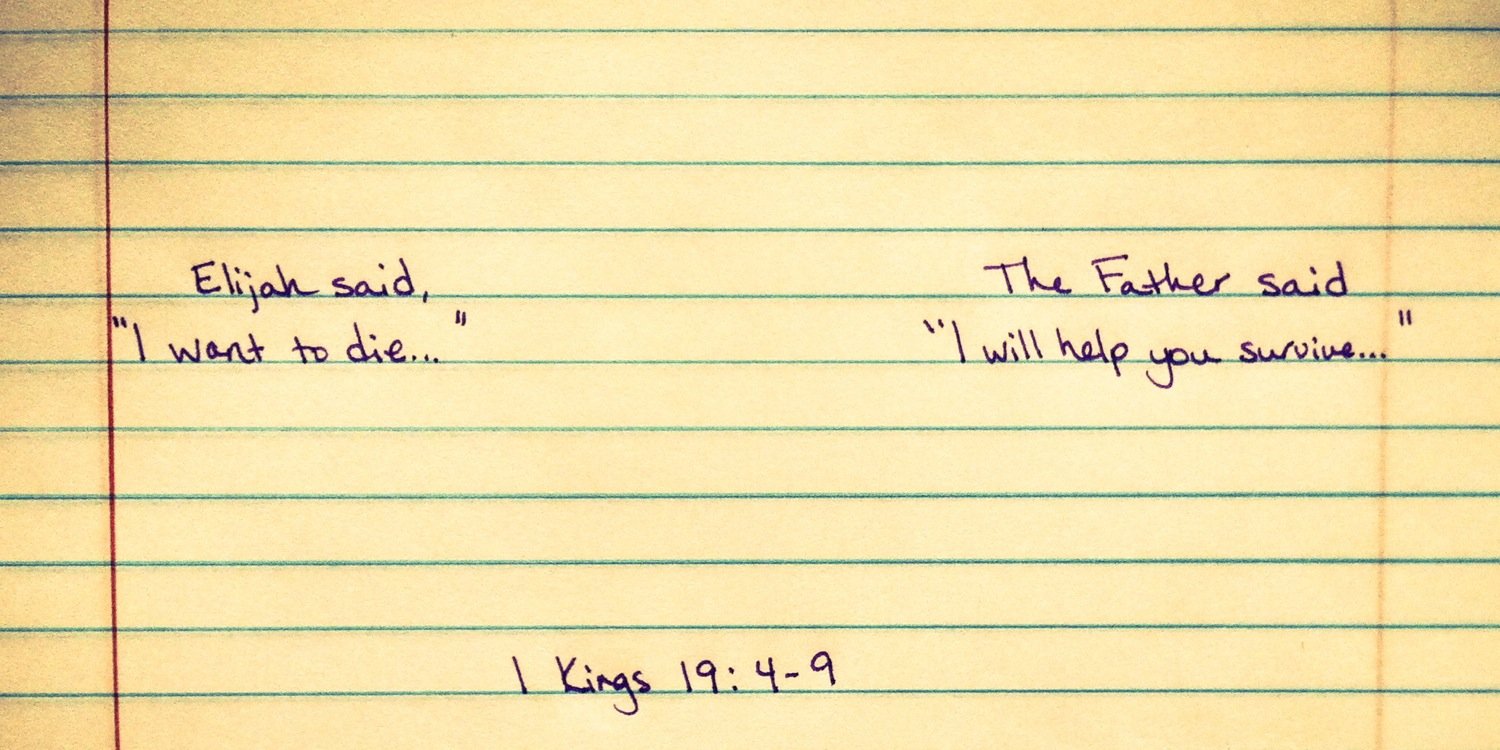 Elijah said,
"I want to die..."
The Father said
"I will help you survive..."
1 Kings 19:4-9